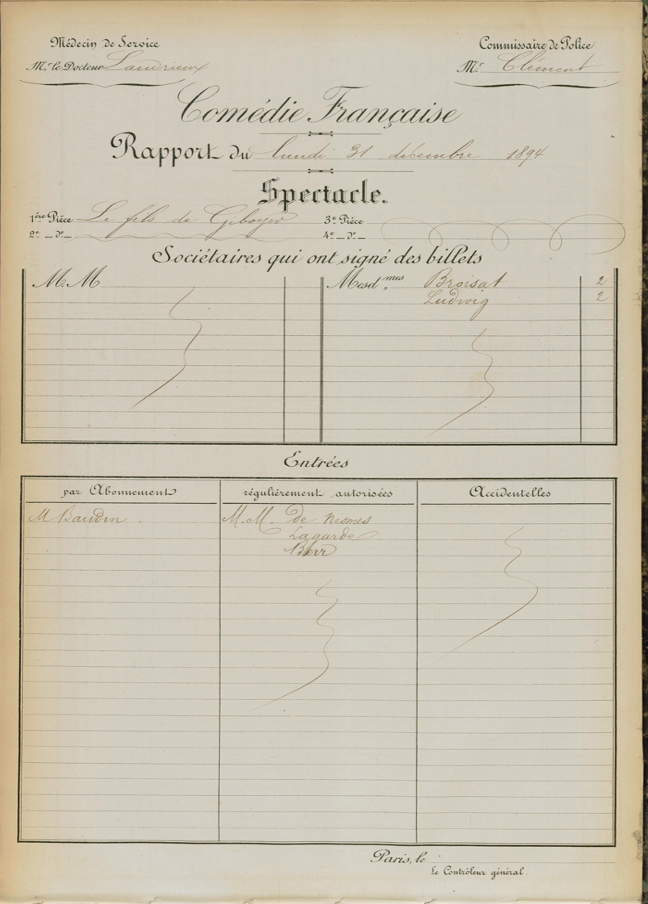 Médecin de Service
Commissaire de Police
Mr. le Docteur Landrieux
Mr. Clément
Comédie Française
Rapport du lundi 31 décembre 1894
Spectacle.
1ère Pièce Le fils de Giboyer 3e Pièce
2e _ do _ 4e _ do _
Sociétaires qui ont signé des billets
M.M Mesdmes Broisat 2
Ludwig 2
Entrées
par Abonnement régulièrement autorisées Accidentelles
M Baudin . M.M. de
Lagarde
Berr
Paris, le
Le Contrôleur général.